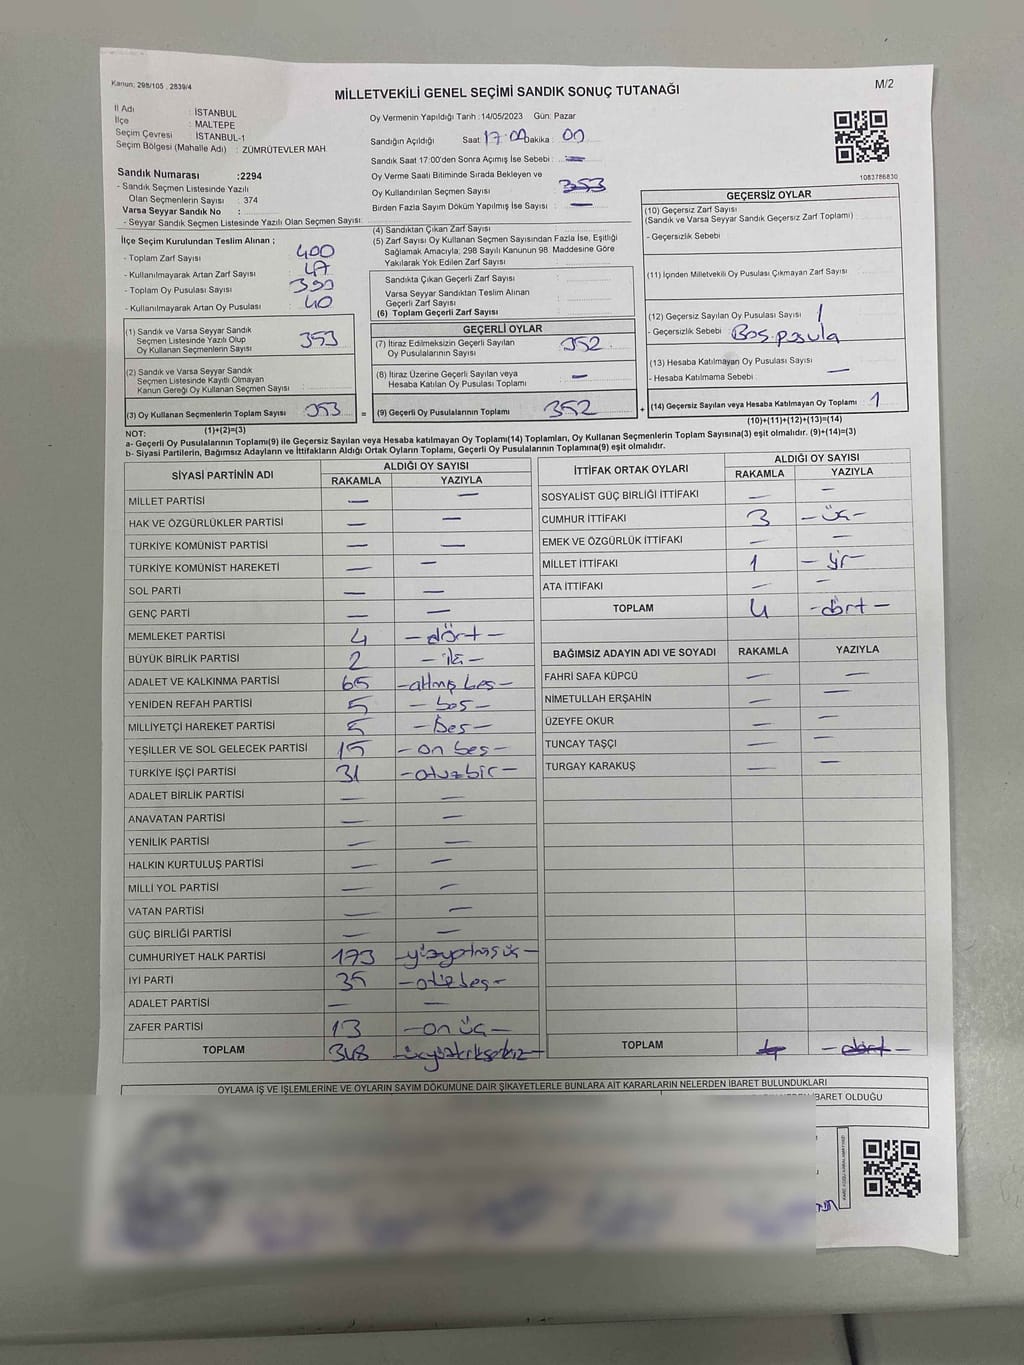 Kanun: 298/105 , 2839/4
M/2
MİLLETVEKİLİ GENEL SEÇİMİ SANDIK SONUÇ TUTANAĞI
İl Adı : İSTANBUL
İlçe : MALTEPE
Seçim Çevresi : İSTANBUL-1
Seçim Bölgesi (Mahalle Adı) : ZÜMRÜTEVLER MAH.
Oy Vermenin Yapıldığı Tarih :14/05/2023 Gün: Pazar
Sandığın Açıldığı Saat : 17:00 Dakika : 00
Sandık Saat 17:00'den Sonra Açımış İse Sebebi : —
Oy Verme Saati Bitiminde Sırada Bekleyen ve
Oy Kullandırılan Seçmen Sayısı 353
Birden Fazla Sayım Döküm Yapılmış İse Sayısı : —
Sandık Numarası :2294
- Sandık Seçmen Listesinde Yazılı
Olan Seçmenlerin Sayısı : 374
Varsa Seyyar Sandık No :
- Seyyar Sandık Seçmen Listesinde Yazılı Olan Seçmen Sayısı:
1083786830
İlçe Seçim Kurulundan Teslim Alınan ;
- Toplam Zarf Sayısı : 400
- Kullanılmayarak Artan Zarf Sayısı : 47
- Toplam Oy Pusulası Sayısı : 393
- Kullanılmayarak Artan Oy Pusulası : 40
(1) Sandık ve Varsa Seyyar Sandık
Seçmen Listesinde Yazılı Olup
Oy Kullanan Seçmenlerin Sayısı 353
(2) Sandık ve Varsa Seyyar Sandık
Seçmen Listesinde Kayıtlı Olmayan
Kanun Gereği Oy Kullanan Seçmen Sayısı :
(3) Oy Kullanan Seçmenlerin Toplam Sayısı 353 =
(1)+(2)=(3)
(4) Sandıktan Çıkan Zarf Sayısı
(5) Zarf Sayısı Oy Kullanan Seçmen Sayısından Fazla İse, Eşitliği
Sağlamak Amacıyla; 298 Sayılı Kanunun 98. Maddesine Göre
Yakılarak Yok Edilen Zarf Sayısı :
Sandıkta Çıkan Geçerli Zarf Sayısı :
Varsa Seyyar Sandıktan Teslim Alınan
Geçerli Zarf Sayısı :
(6) Toplam Geçerli Zarf Sayısı :
GEÇERLİ OYLAR
(7) İtiraz Edilmeksizin Geçerli Sayılan
Oy Pusulalarının Sayısı : 352
(8) İtiraz Üzerine Geçerli Sayılan veya
Hesaba Katılan Oy Pusulası Toplamı : —
(9) Geçerli Oy Pusulalarının Toplamı 352 +
GEÇERSİZ OYLAR
(10) Geçersiz Zarf Sayısı
(Sandık ve Varsa Seyyar Sandık Geçersiz Zarf Toplamı) :
- Geçersizlik Sebebi :
(11) İçinden Milletvekili Oy Pusulası Çıkmayan Zarf Sayısı :
(12) Geçersiz Sayılan Oy Pusulası Sayısı : 1
- Geçersizlik Sebebi : Boş pusula
(13) Hesaba Katılmayan Oy Pusulası Sayısı :
- Hesaba Katılmama Sebebi : —
(14) Geçersiz Sayılan veya Hesaba Katılmayan Oy Toplamı 1
(10)+(11)+(12)+(13)=(14)
NOT:
a- Geçerli Oy Pusulalarının Toplamı(9) ile Geçersiz Sayılan veya Hesaba katılmayan Oy Toplamı(14) Toplamları, Oy Kullanan Seçmenlerin Toplam Sayısına(3) eşit olmalıdır. (9)+(14)=(3)
b- Siyasi Partilerin, Bağımsız Adayların ve İttifakların Aldığı Ortak Oyların Toplamı, Geçerli Oy Pusulalarının Toplamına(9) eşit olmalıdır.
SİYASİ PARTİNİN ADI ALDIĞI OY SAYISI
RAKAMLA YAZIYLA
MİLLET PARTİSİ — —
HAK VE ÖZGÜRLÜKLER PARTİSİ — —
TÜRKİYE KOMÜNİST PARTİSİ — —
TÜRKİYE KOMÜNİST HAREKETİ — —
SOL PARTİ — —
GENÇ PARTİ — —
MEMLEKET PARTİSİ 4 – dört –
BÜYÜK BİRLİK PARTİSİ 2 – iki –
ADALET VE KALKINMA PARTİSİ 65 – altmış beş –
YENİDEN REFAH PARTİSİ 5 – beş –
MİLLİYETÇİ HAREKET PARTİSİ 5 – Beş –
YEŞİLLER VE SOL GELECEK PARTİSİ 15 – on beş –
TÜRKİYE İŞÇİ PARTİSİ 31 – otuzbir –
ADALET BİRLİK PARTİSİ — —
ANAVATAN PARTİSİ — —
YENİLİK PARTİSİ — —
HALKIN KURTULUŞ PARTİSİ — —
MİLLİ YOL PARTİSİ — —
VATAN PARTİSİ — —
GÜÇ BİRLİĞİ PARTİSİ — —
CUMHURİYET HALK PARTİSİ 173 – yüzyetmişüç –
İYİ PARTİ 35 – otuzbeş –
ADALET PARTİSİ — —
ZAFER PARTİSİ 13 – on üç –
TOPLAM 348 – üçyüzkırksekiz –
İTTİFAK ORTAK OYLARI ALDIĞI OY SAYISI
RAKAMLA YAZIYLA
SOSYALİST GÜÇ BİRLİĞİ İTTİFAKI — —
CUMHUR İTTİFAKI 3 – üç –
EMEK VE ÖZGÜRLÜK İTTİFAKI — —
MİLLET İTTİFAKI 1 – bir –
ATA İTTİFAKI — —
TOPLAM 4 – dört –
BAĞIMSIZ ADAYIN ADI VE SOYADI RAKAMLA YAZIYLA
FAHRİ SAFA KÜPCÜ — —
NİMETULLAH ERŞAHİN — —
ÜZEYFE OKUR — —
TUNCAY TAŞÇI — —
TURGAY KARAKUŞ — —
TOPLAM 4 – dört –
OYLAMA İŞ VE İŞLEMLERİNE VE OYLARIN SAYIM DÖKÜMÜNE DAİR ŞİKAYETLERLE BUNLARA AİT KARARLARIN NELERDEN İBARET BULUNDUKLARI
İBARET OLDUĞU